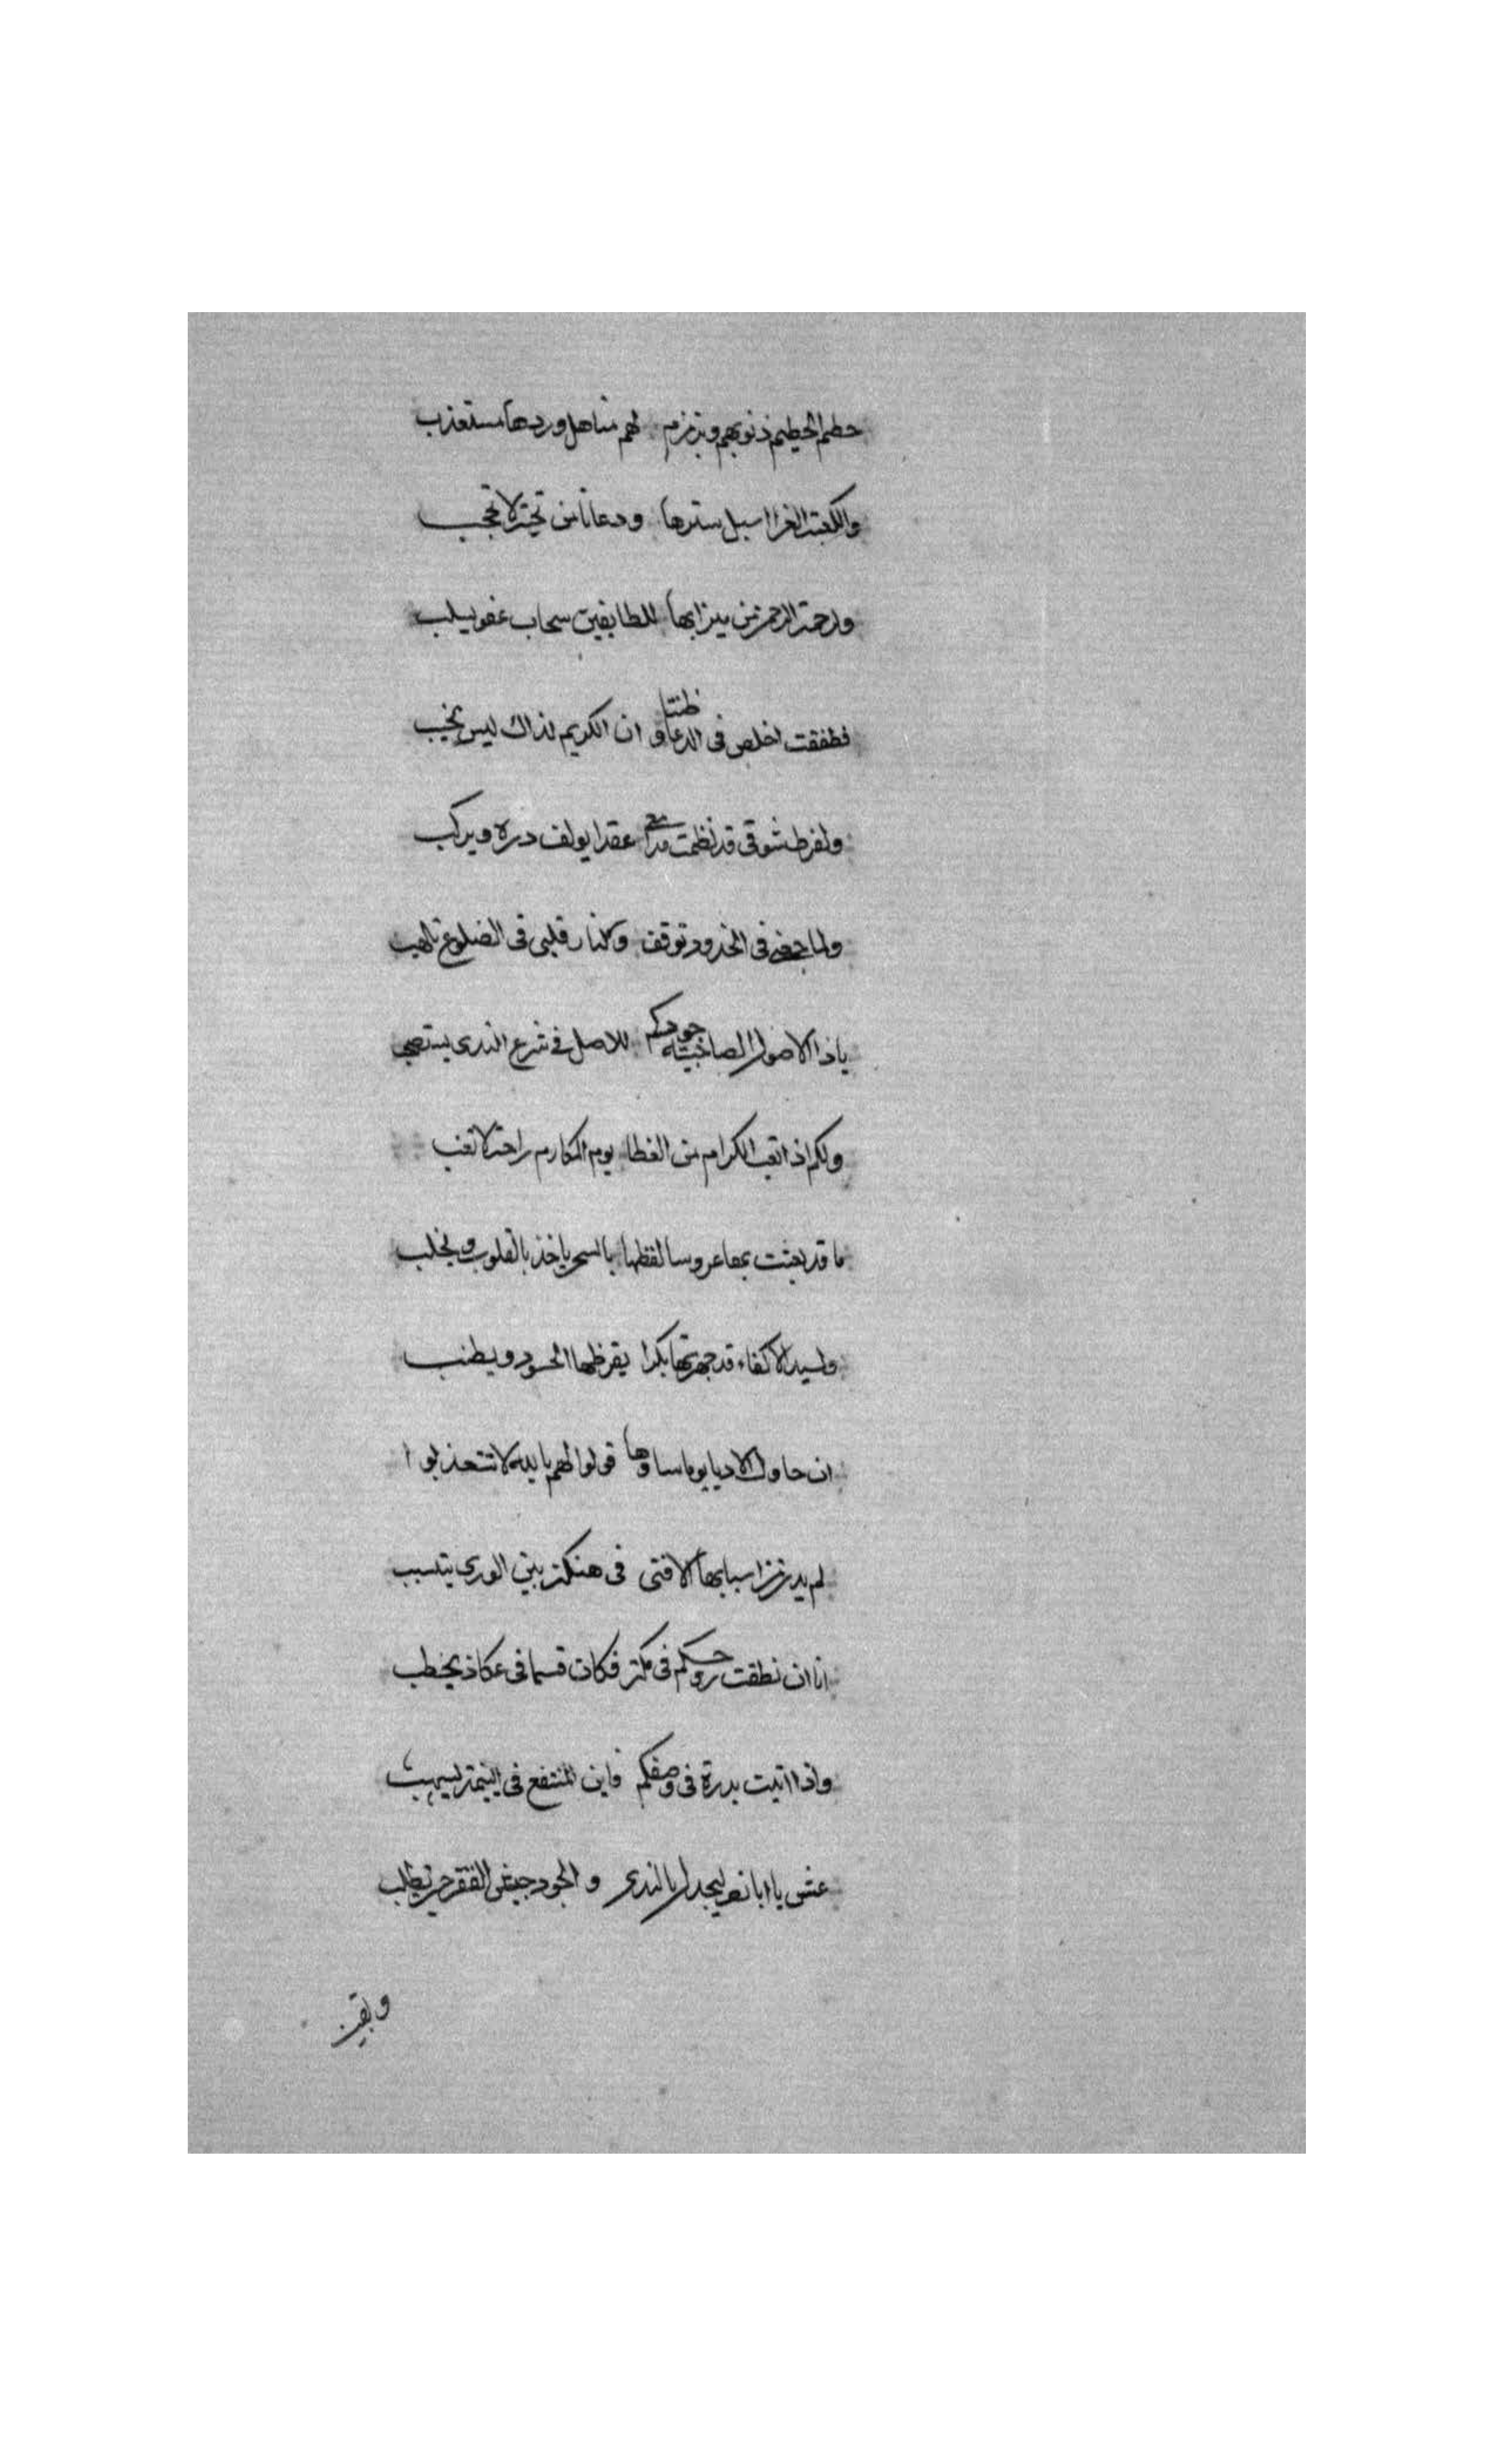 حطم الحطيم ذنوبهم وبزمزم لهم مناهل وردها مستعذب
والكعبة الغرا اسبل سترها ودعانا من تحته لا تحجب
ولرحمة الرحمن من ميزابها للطايفين سحاب عفو يسلب
فطفقت اخلص فى الدعا وظننا ان الكريم لذاك ليس يخيب
ولفرط شوقى قد نظمت مدايح عقدا يولف دره ويركب
ولما جفنى فى الخدود توقف وكنار قلبى فى الضلوع تلهب
ياذا الاصول الصاحبية جودكم للاصل فى شرع الندى يستصحب
ولكم اذ اتعب الكرام من العطا يوم المكارم راحة لا تتعب
ما قد بعثت بها عروسا لفظها بالسحر ياخذ بالقلوب ويخلب
ولسيد الاكفاء قد جهزتها بكرا يقرظها الحسود ويطنب
ان حاول الادبا يوما ساوها قولوا لهم بالله لا تتعذبوا
لم يدر من اسبابها الا فتى فى هتكة بين الورى يتسبب
انا ان نطقت بروحكم فى مكة فكان قسا فى عكاذ يخطب
واذا اتيت بدرة فى وصفكم فابن المقفع فى اليتيمة يسهب
عش يا ابا نصر لمجدك بالندى والجود جيش الفقر حين يطلب
وبقيت